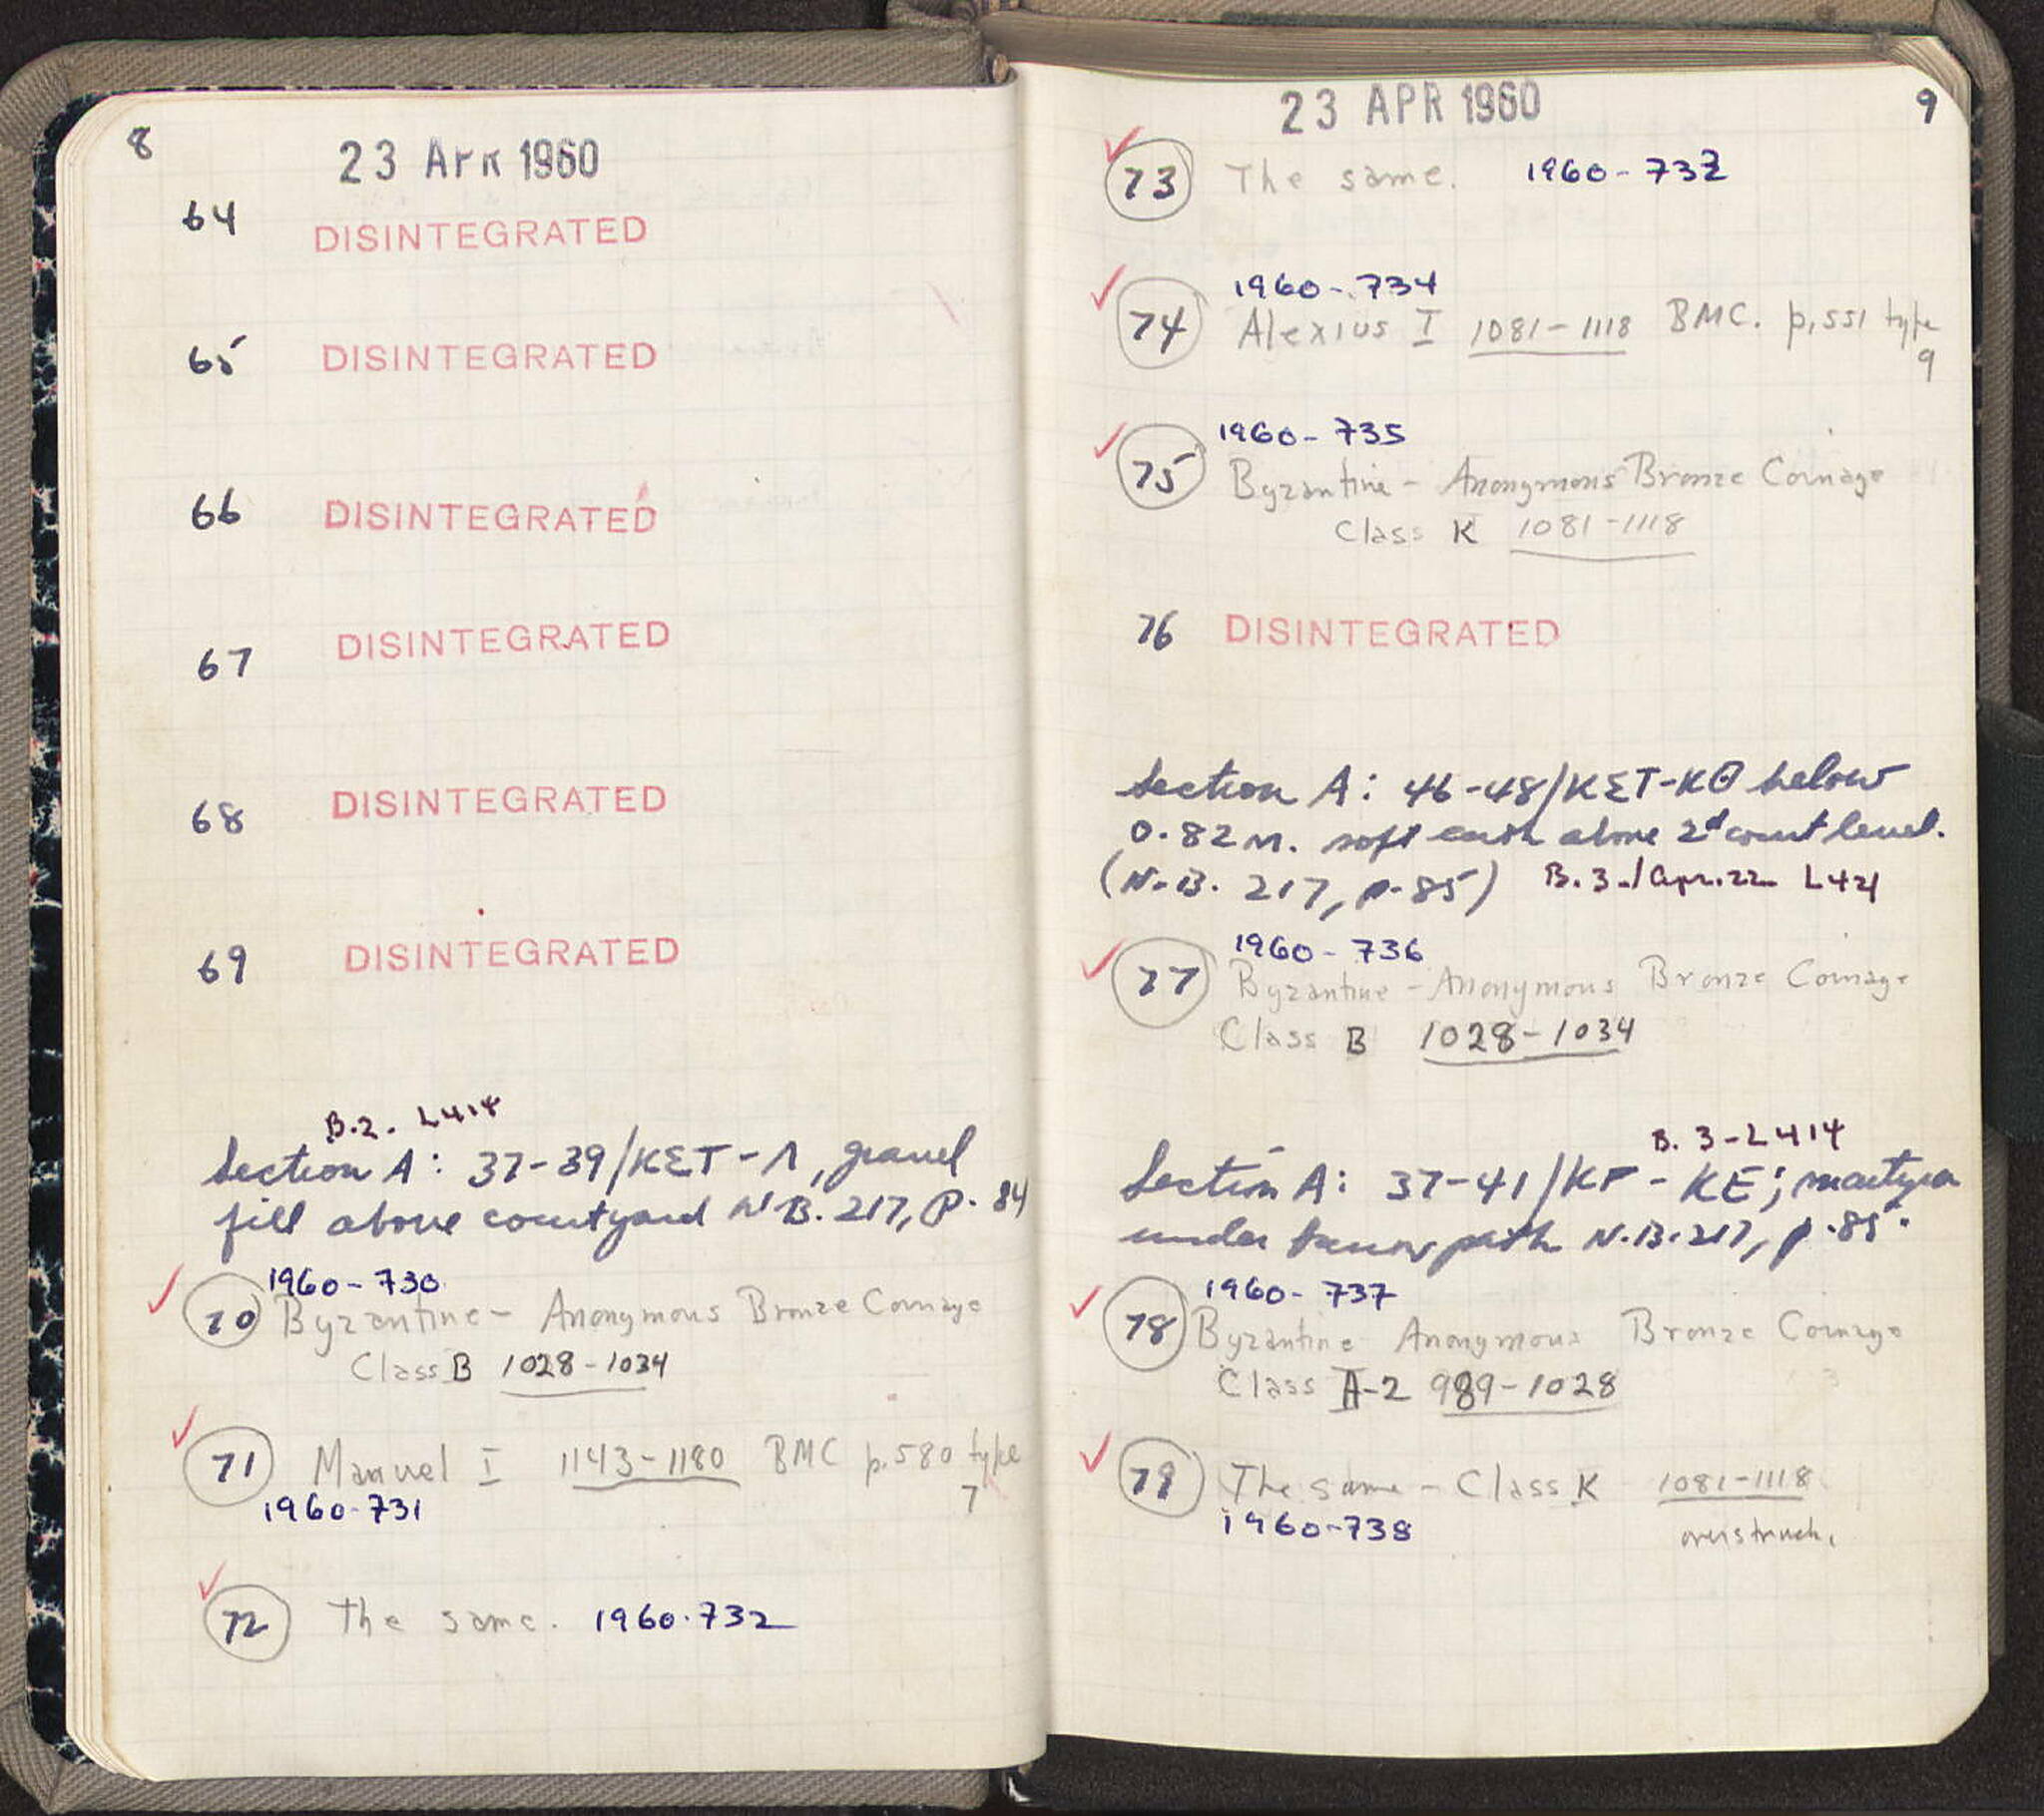 8
23 APR 1960
64 DISINTEGRATED
65 DISINTEGRATED
66 DISINTEGRATED
67 DISINTEGRATED
68 DISINTEGRATED
69 DISINTEGRATED
B.2. L414
Section A: 37-39/KΣT-Λ, gravel
fill above courtyard N.B. 217, P. 84
1960-730
70 Byzantine - Anonymous Bronze Coinage
Class B 1028-1034
71 Manuel I 1143-1180 BMC p.580 type
7
1960-731
72 The same. 1960.732
23 APR 1960
9
73 The same. 1960-733
1960-734
74 Alexius I 1081-1118 BMC. p.551 type
9
1960-735
75 Byzantine - Anonymous Bronze Coinage
Class K 1081-1118
76 DISINTEGRATED
Section A: 46-48/KΣT-KΘ below
0.82 m. soft earth above 2d court level.
(N.B. 217, p.85) B.3-/Apr.22 L421
1960-736
77 Byzantine - Anonymous Bronze Coinage
Class B 1028-1034
B. 3-L414
Section A: 37-41/KΓ - KE;
under path N.B.217, p.85.
1960-737
78 Byzantine Anonymous Bronze Coinage
Class A-2 989-1028
79 The same - Class K 1081-1118
1960-738 overstruck.